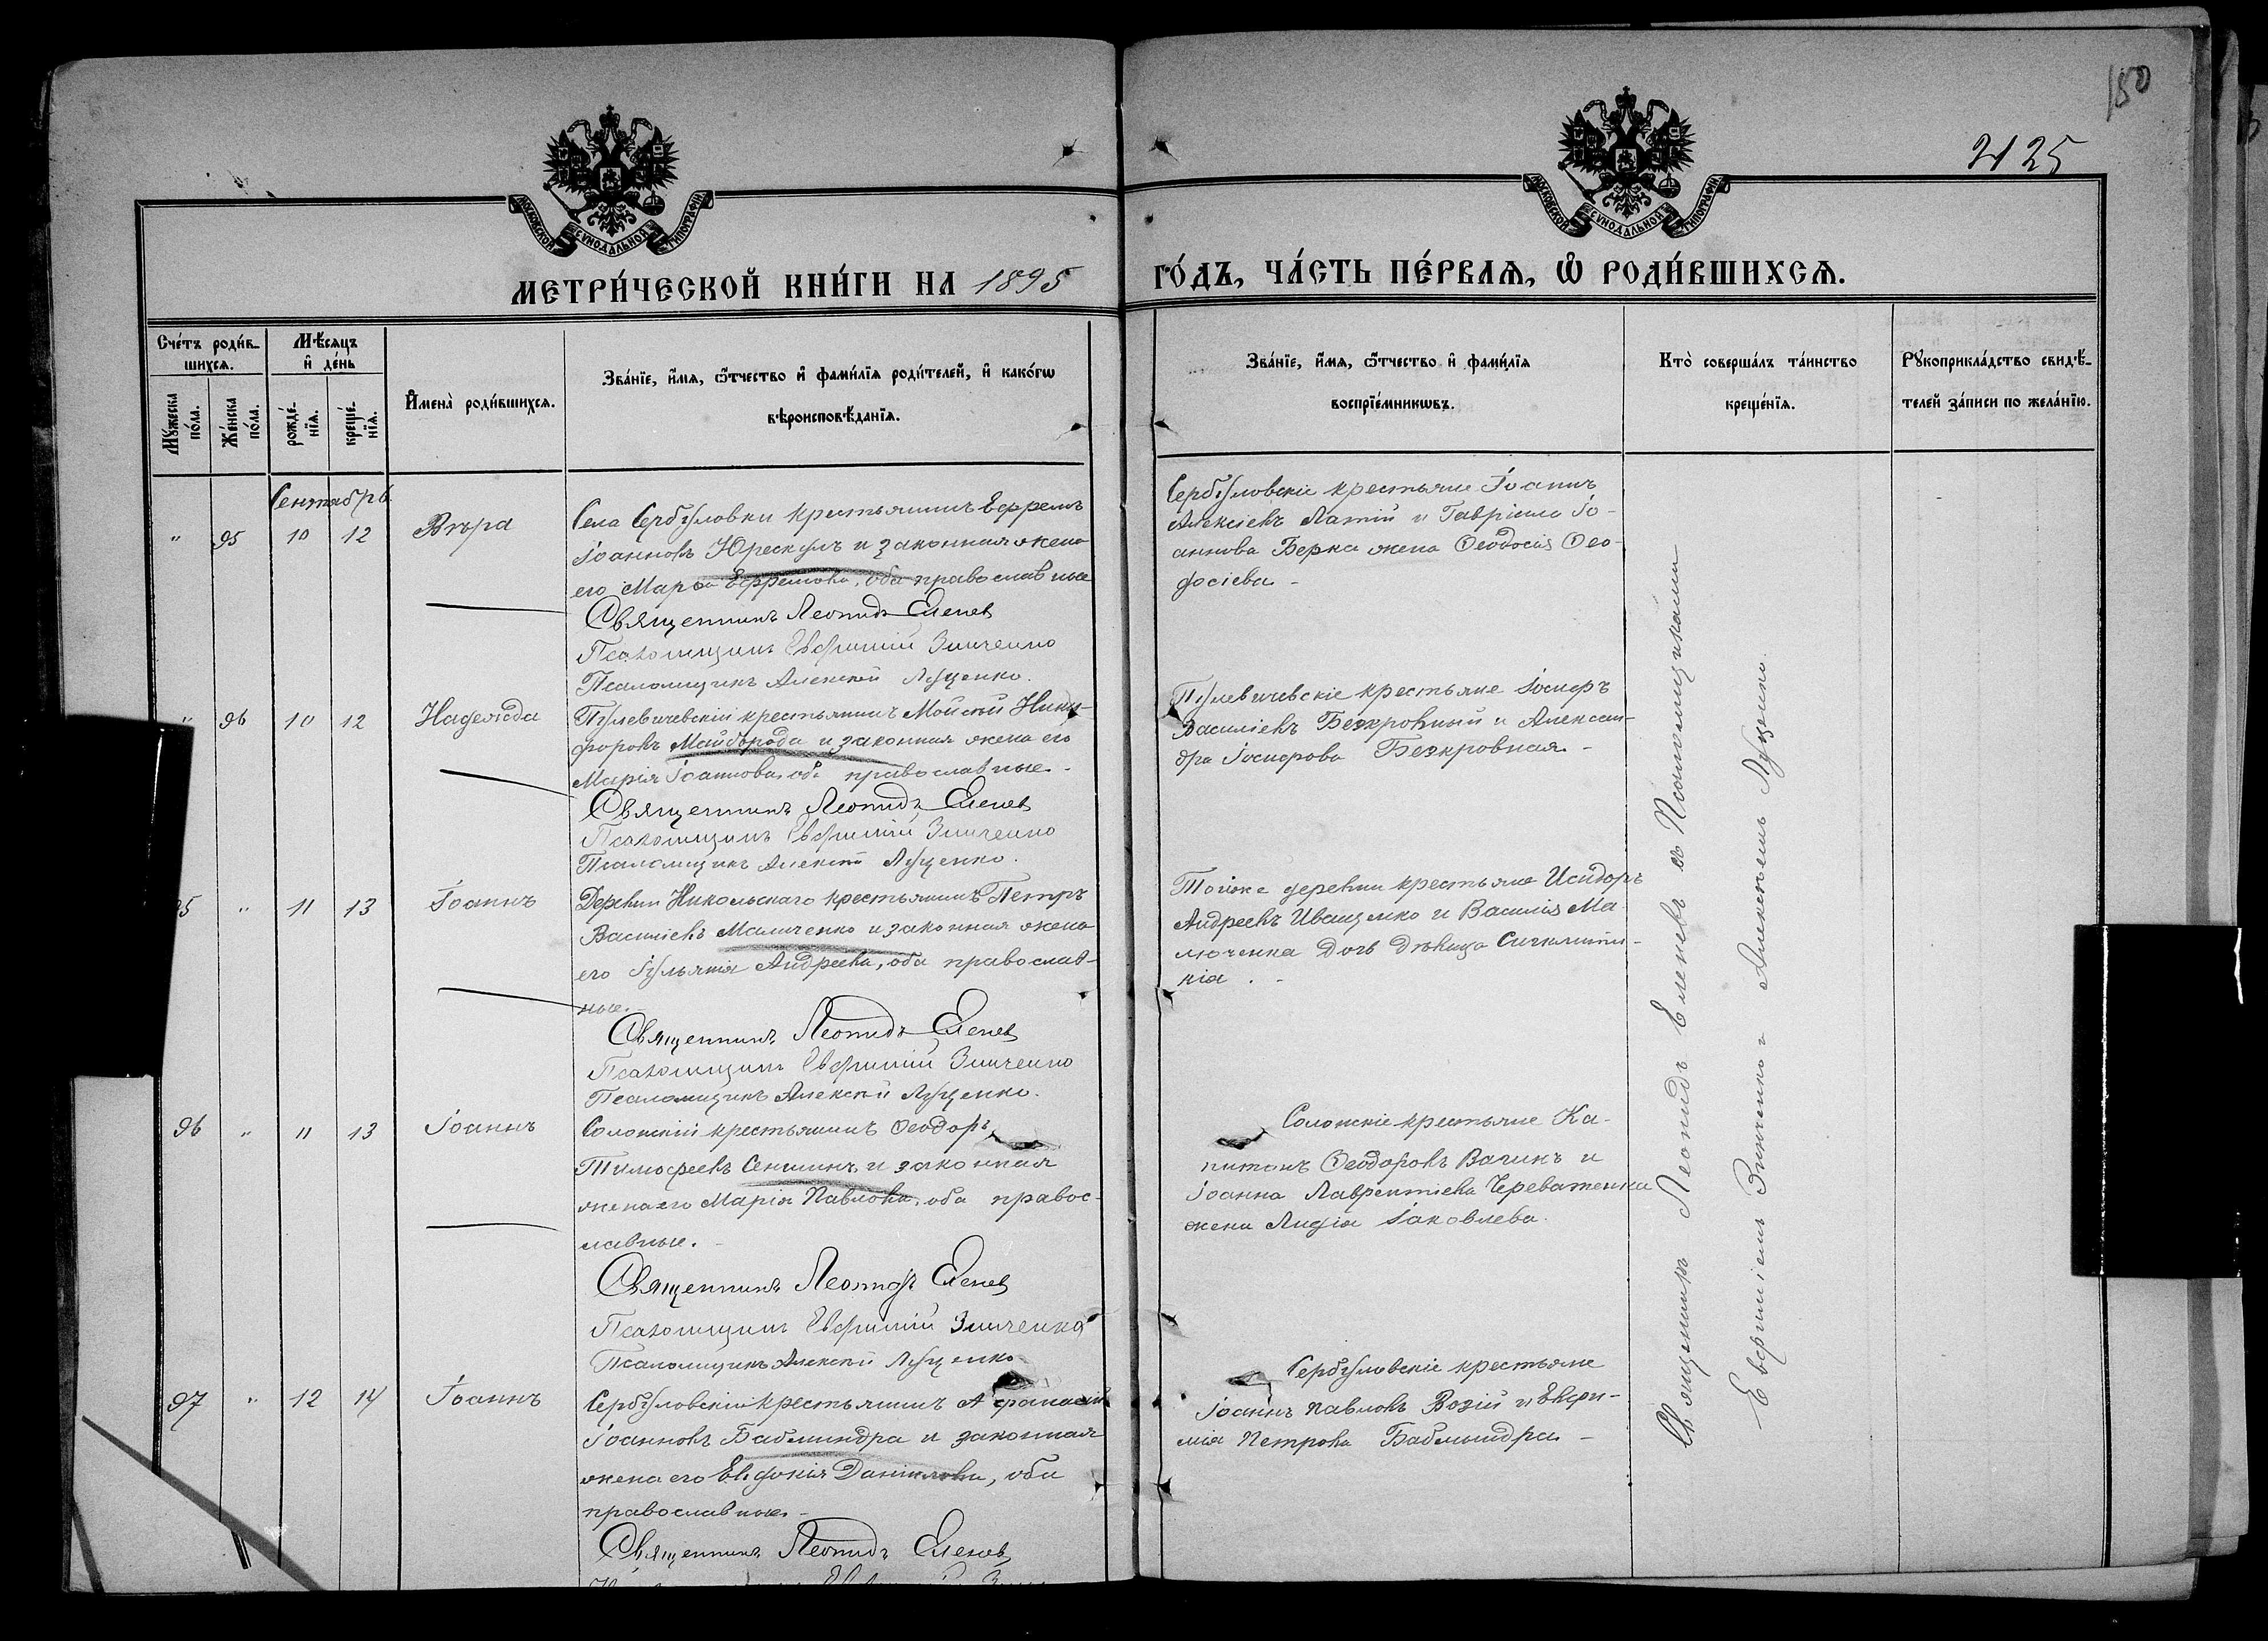 150
2125
МОСКОВСКОЙ СѴНОДАЛЬНОЙ ТИПОГРАФІИ
МОСКОВСКОЙ СѴНОДАЛЬНОЙ ТИПОГРАФІИ
МЕТРИ́ЧЕСКОЙ КНИ́ГИ НА 1895
ГО́ДЪ, ЧА́СТЬ ПЕ́РВАѦ, Ѡ҆ РОДИ́ВШИХСѦ.
Сче́тъ роди́в-
шихсѧ.
Мꙋ́жеска по́ла.
Же́нска по́ла.
Мѣ́сѧцъ
и҆ де́нь
рожде́-
нїѧ.
креще́-
нїѧ.
И҆мена̀ роди́вшихсѧ.
Зва́нїе, и҆́мѧ, ѻ҆́тчество и҆ фами́лїѧ роди́телей, и҆ како́гѡ
вѣроисповѣ́данїѧ.
Зва́нїе, и҆́мѧ, ѻ҆́тчество и҆ фами́лїѧ
воспрїе́мникѡвъ.
Кто̀ соверша́лъ та́инство
креще́нїѧ.
Рꙋкоприкла́дство свидѣ́-
телей за́писи по жела́нїю.
Сентябрь
" 95 10 12 Вѣра
Села Сербуловки крестьянинъ Ефремъ
Іоанновъ Юрескулъ и законная жена
его Марѳа Ефремова, оба православные
Священникъ Леонидъ Еленев
Псаломщикъ Евфимій Зинченко
Псаломщикъ Алексѣй Луценко.
Сербуловскіе крестьяне Іоаннъ
Алексіевъ Латій и Гавріила Іо-
аннова Берка жена Ѳеодосія Ѳео-
досіева -
" 96 10 12 Надежда
Пулевичевскій крестьянинъ Мойсей Ники-
форовъ Майборода и законная жена его
Марія Іоаннова, оба православные -
Священникъ Леонидъ Еленев
Псаломщикъ Евфимій Зинченко
Псаломщикъ Алексѣй Луценко.
Пулевичевскіе крестьяне Іосифъ
Василіевъ Безкровный и Алексан-
дра Іосифова Безкровная -
95 " 11 13 Іоаннъ
Деревни Никольскаго крестьянинъ Петръ
Василіевъ Маличенко и законная жена
его Іуліанія Андреева, оба православ-
ные.
Священникъ Леонидъ Еленев
Псаломщикъ Евфимій Зинченко
Псаломщикъ Алексѣй Луценко.
Тойже деревни крестьяне Исидоръ
Андреевъ Иващенко и Василія Ма-
люченка дочь дѣвица
96 " 11 13 Іоаннъ
Солонскій крестьянинъ Ѳеодоръ
Тимоѳеевъ Сенишинъ и законная
жена его Марія Павлова, оба правос-
лавные. -
Священникъ Леонидъ Еленев
Псаломщикъ Евфимій Зинченко
Псаломщикъ Алексѣй Луценко
Солонскіе крестьяне Ка-
питонъ Ѳеодоровъ Вачикъ и
Іоанна Лаврентіева Череватенка
жена Лидія Іаковлева.
97 " 12 14 Іоаннъ
Сербуловскій крестьянинъ Аѳанасій
Іоанновъ Бабмындра и законная
жена его Евдокія Даніилова, оба
православные -
Священникъ Леонидъ Еленев
Сербуловскіе крестьяне
Іоаннъ Павловъ Возій и Евфи-
мія Петрова Бабмындра -
Священникъ Леонидъ Еленевъ съ Псаломщиками
Евфиміемъ Зинченко и Алексѣемъ Луценко.